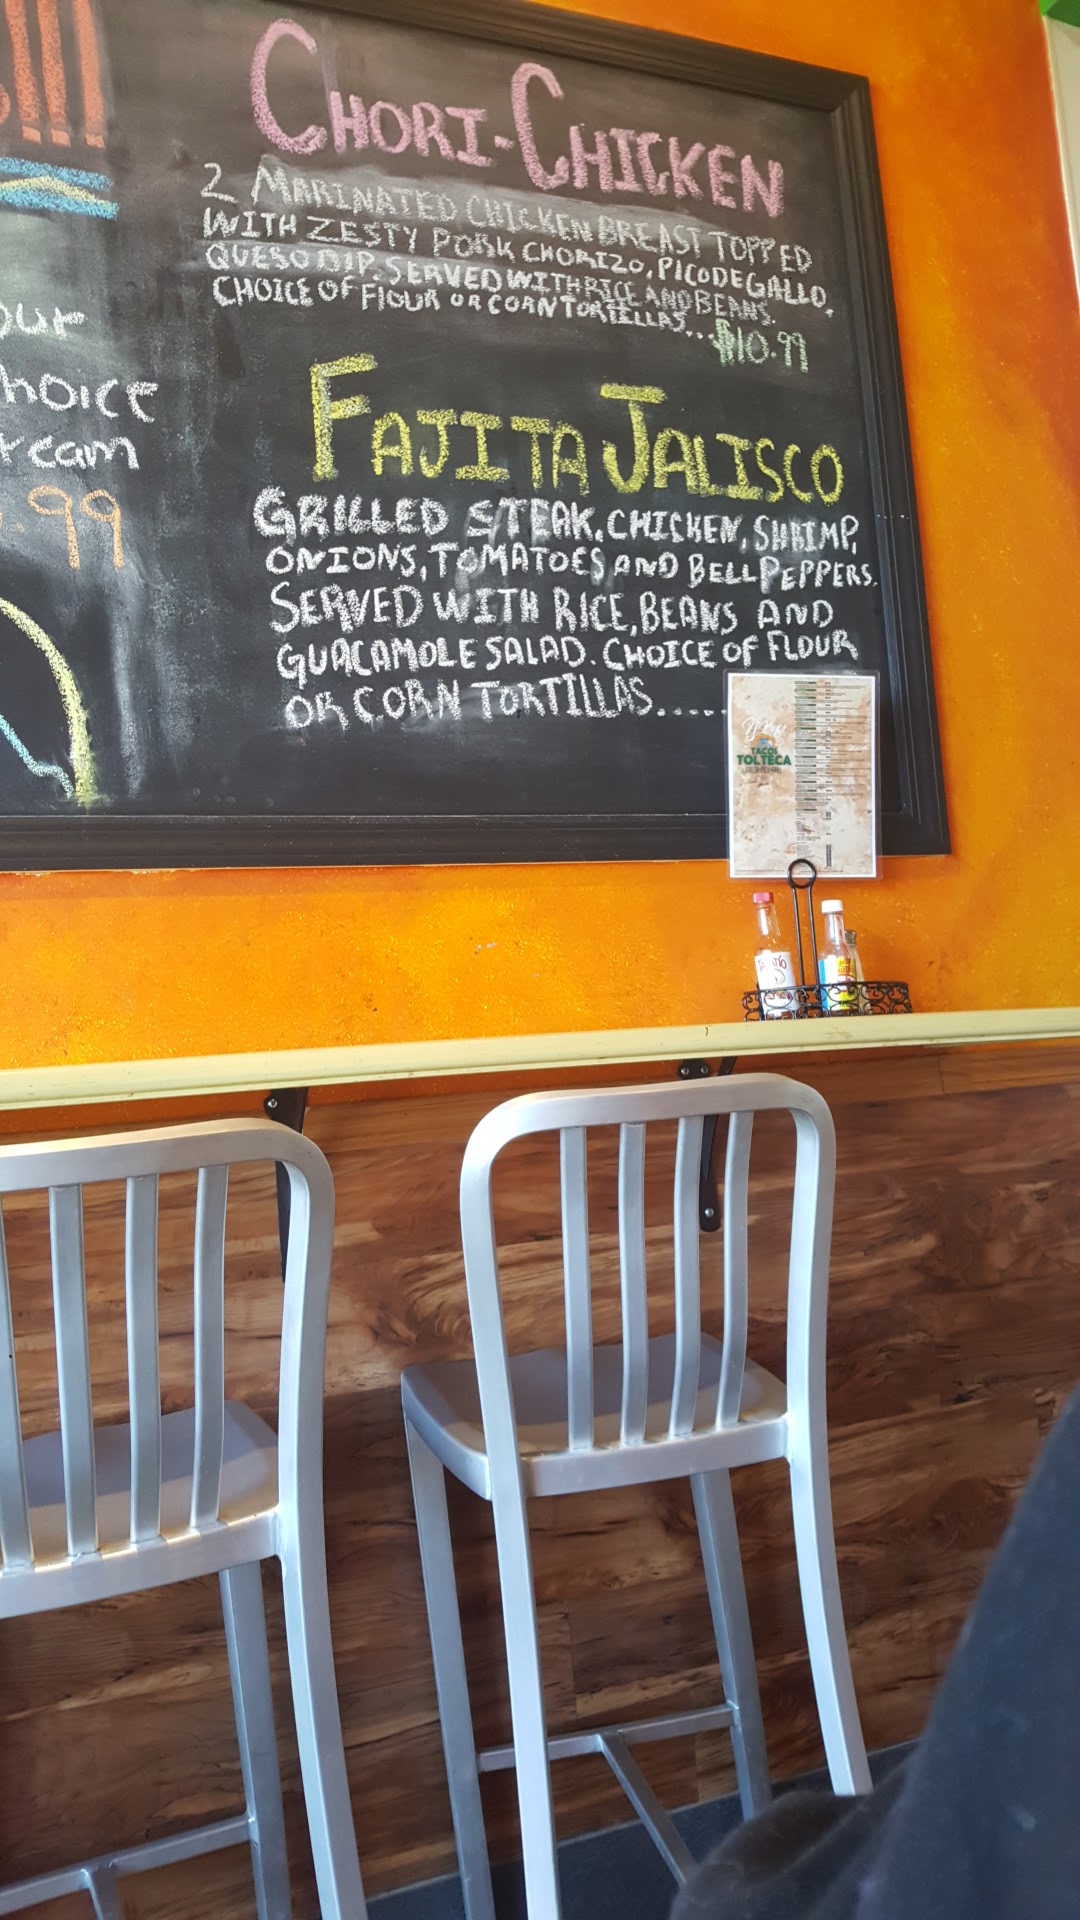 CHORI-CHICKEN
2 MARINATED CHICKEN BREAST TOPPED
WITH ZESTY PORK CHORIZO, PICO DE GALLO,
QUESO DIP. SERVED WITH RICE AND BEANS.
CHOICE OF FLOUR OR CORN TORTILLAS...$10.99
FAJITA JALISCO
GRILLED STEAK, CHICKEN, SHRIMP,
ONIONS, TOMATOES AND BELL PEPPERS.
SERVED WITH RICE, BEANS AND
GUACAMOLE SALAD. CHOICE OF FLOUR
OR CORN TORTILLAS.....
our
hoice
ream
.99
TACOS
TOLTECA